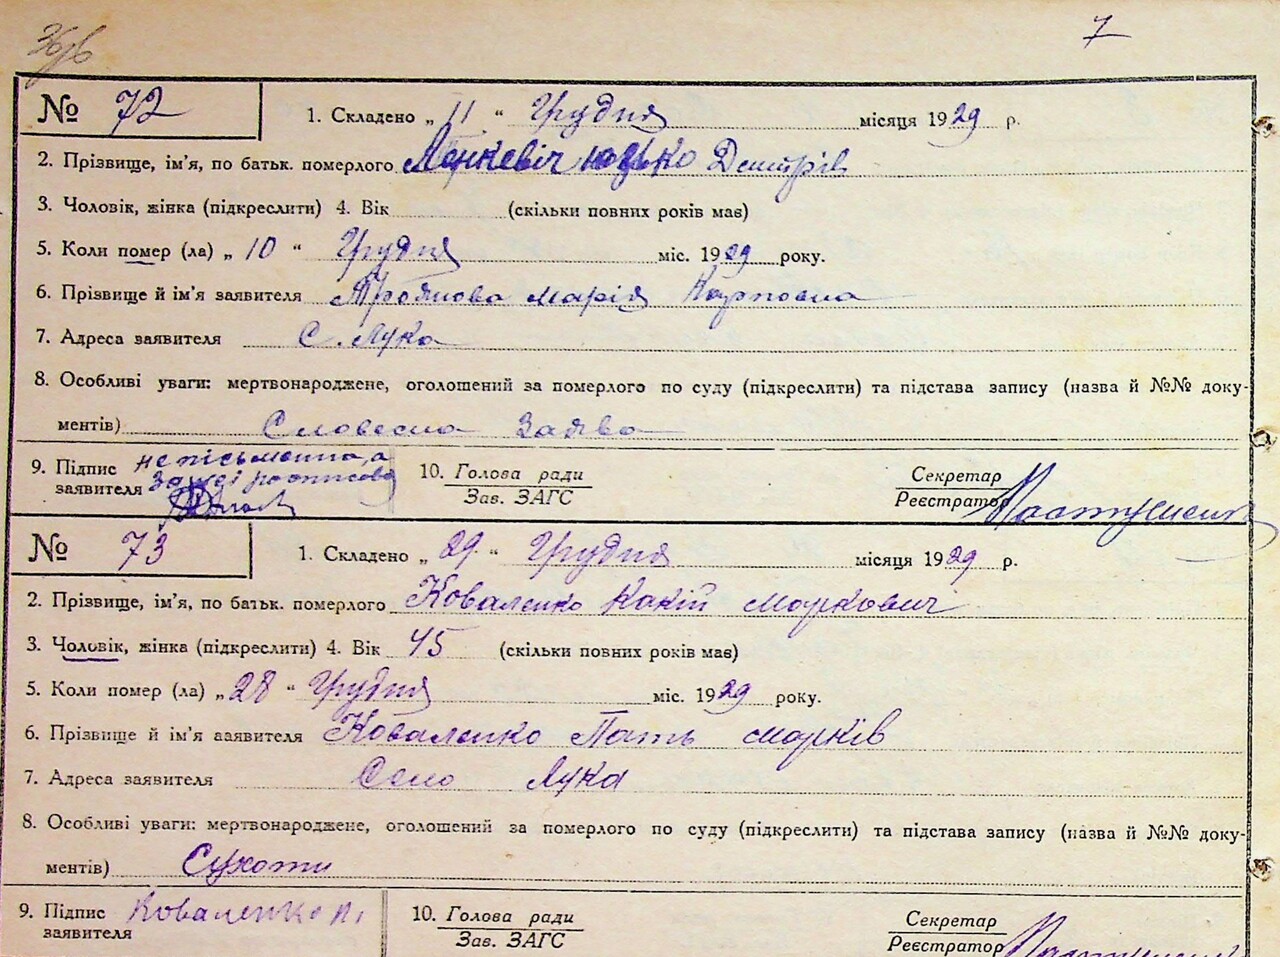 7
№ 72
1. Складено „ 11 “ Грудня місяця 1929 р.
2. Прізвище, ім'я, по батьк. померлого Ленкевіч Юзько Дмитрів
3. Чоловік, жінка (підкреслити) 4. Вік (скільки повних років має)
5. Коли помер (ла) „ 10 “ Грудня міс. 1929 року.
6. Прізвище й ім'я заявителя Троянова Марія Карповна
7. Адреса заявителя С. Лука
8. Особливі уваги: мертвонароджене, оголошений за померлого по суду (підкреслити) та підстава запису (назва й №№ доку-
ментів) Словесна Заява
9. Підпис неписьменна, а
заявителя за неі росписався
10. Голова ради
Зав. ЗАГС
Секретар
Реєстратор Пастушенко
№ 73
1. Складено „ 29 “ Грудня місяця 1929 р.
2. Прізвище, ім'я, по батьк. померлого Коваленко Какій Маркович
3. Чоловік, жінка (підкреслити) 4. Вік 45 (скільки повних років має)
5. Коли помер (ла) „ 28 “ Грудня міс. 1929 року.
6. Прізвище й ім'я заявителя Коваленко Марків
7. Адреса заявителя Село Лука
8. Особливі уваги: мертвонароджене, оголошений за померлого по суду (підкреслити) та підстава запису (назва й №№ доку-
ментів) Сухоти
9. Підпис Коваленко П.
заявителя
10. Голова ради
Зав. ЗАГС
Секретар
Реєстратор Пастушенко